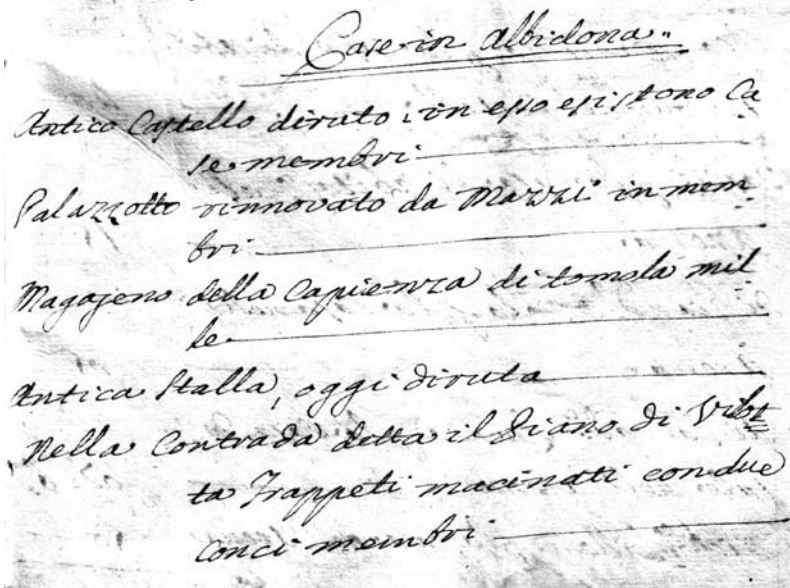 Case in Albidona"
Antico Castello diruto, in esso esistono Ca
se membri
Palazzotto rinnovato da Mazzei in mem
bri
Magazeno della Capienza di tomola mil
le
Antica Stalla, oggi diruta
Nella Contrada detta il Piano di
ta Trappeti macinati con due
conci membri